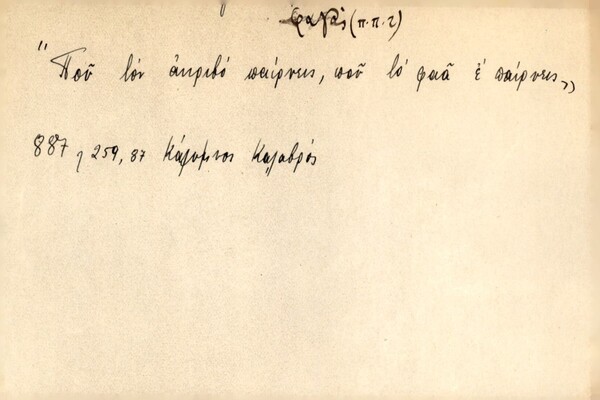 φαγᾶς (π.π.2)
"Ποῦ τὸν ἀκριβό παίρνεις, ποῦ τὸ φαᾶ ἐ παίρνεις"
887, 259, 87 Κάλυμνος Καλαβρός